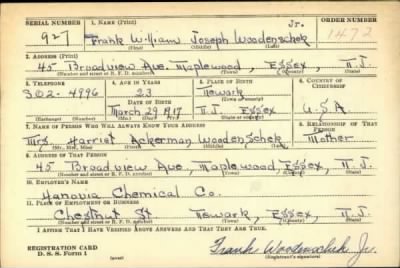 SERIAL NUMBER 1. NAME (Print) ORDER NUMBER
927 Frank William Joseph Woodenschek Jr. 1472
(First) (Middle) (Last)
2. ADDRESS (Print)
45 Broadview Ave. Maplewood, Essex, N.J.
(Number and street or R. F. D. number) (Town) (County) (State)
3. TELEPHONE 4. AGE IN YEARS 5. PLACE OF BIRTH 6. COUNTRY OF CITIZENSHIP
SO2-4996 23 Newark U.S.A
DATE OF BIRTH (Town or county)
March 29 1917 N.J. Essex
(Exchange) (Number) (Mo.) (Day) (Yr.) (State or country)
7. NAME OF PERSON WHO WILL ALWAYS KNOW YOUR ADDRESS 8. RELATIONSHIP OF THAT PERSON
Mrs. Harriet Ackerman Woodenschek Mother
(Mr., Mrs., Miss) (First) (Middle) (Last)
9. ADDRESS OF THAT PERSON
45 Broadview Ave., Maplewood, Essex, N.J.
(Number and street or R. F. D. number) (Town) (County) (State)
10. EMPLOYER'S NAME
Hanovia Chemical Co.
11. PLACE OF EMPLOYMENT OR BUSINESS
Chestnut St Newark, Essex N.J.
(Number and street or R. F. D. number) (Town) (County) (State)
I AFFIRM THAT I HAVE VERIFIED ABOVE ANSWERS AND THAT THEY ARE TRUE.
REGISTRATION CARD
D. S. S. Form 1 (over) Frank Woodenschek Jr.
(Registrant's signature)